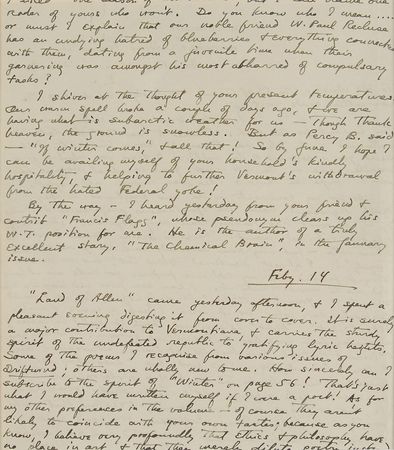 reader of yours who won't. Do you know who I mean ....
or must I explain that our noble friend W. Paul
has an undying hatred of blueberries & everything connected
with them, dating from a juvenile time when their
gathering was amongst his most abhorred of compulsory
tasks?
I shiver at the thought of your present temperatures.
Our warm spell broke a couple of days ago, & we are
having what is subarctic weather for us — though thank
heaven, the ground is snowless. But as Percy B. said
— "If winter comes," & all that! So by June, I hope I
can be availing myself of your household's kindly
hospitality, & helping to further Vermont's withdrawal
from the hated Federal yoke!
By the way — I heard yesterday from your friend &
contrib "Francis Flagg", whose pseudonym clears up his
W.T. position for me. He is the author of a truly
excellent story, "The Chemical Brain", in the January
issue.
Feby. 14
"Land of Allen" came yesterday afternoon, & I spent a
pleasant evening digesting it from cover to cover. It is surely
a major contribution to Vermontiana, & carries the sturdy
spirit of the undefeated republic to gratifying lyric heights.
Some of the poems I recognise from various issues of
Driftwind; others are wholly new to me. How sincerely can I
subscribe to the spirit of "Winter" on page 56! That's just
what I would have written myself if I were a poet! As for
my other preferences in the volume — of course they aren't
likely to coincide with your own tastes; because as you
know, I believe very profoundly that Ethics & philosophy have
no place in art & that they merely dilute poetry just